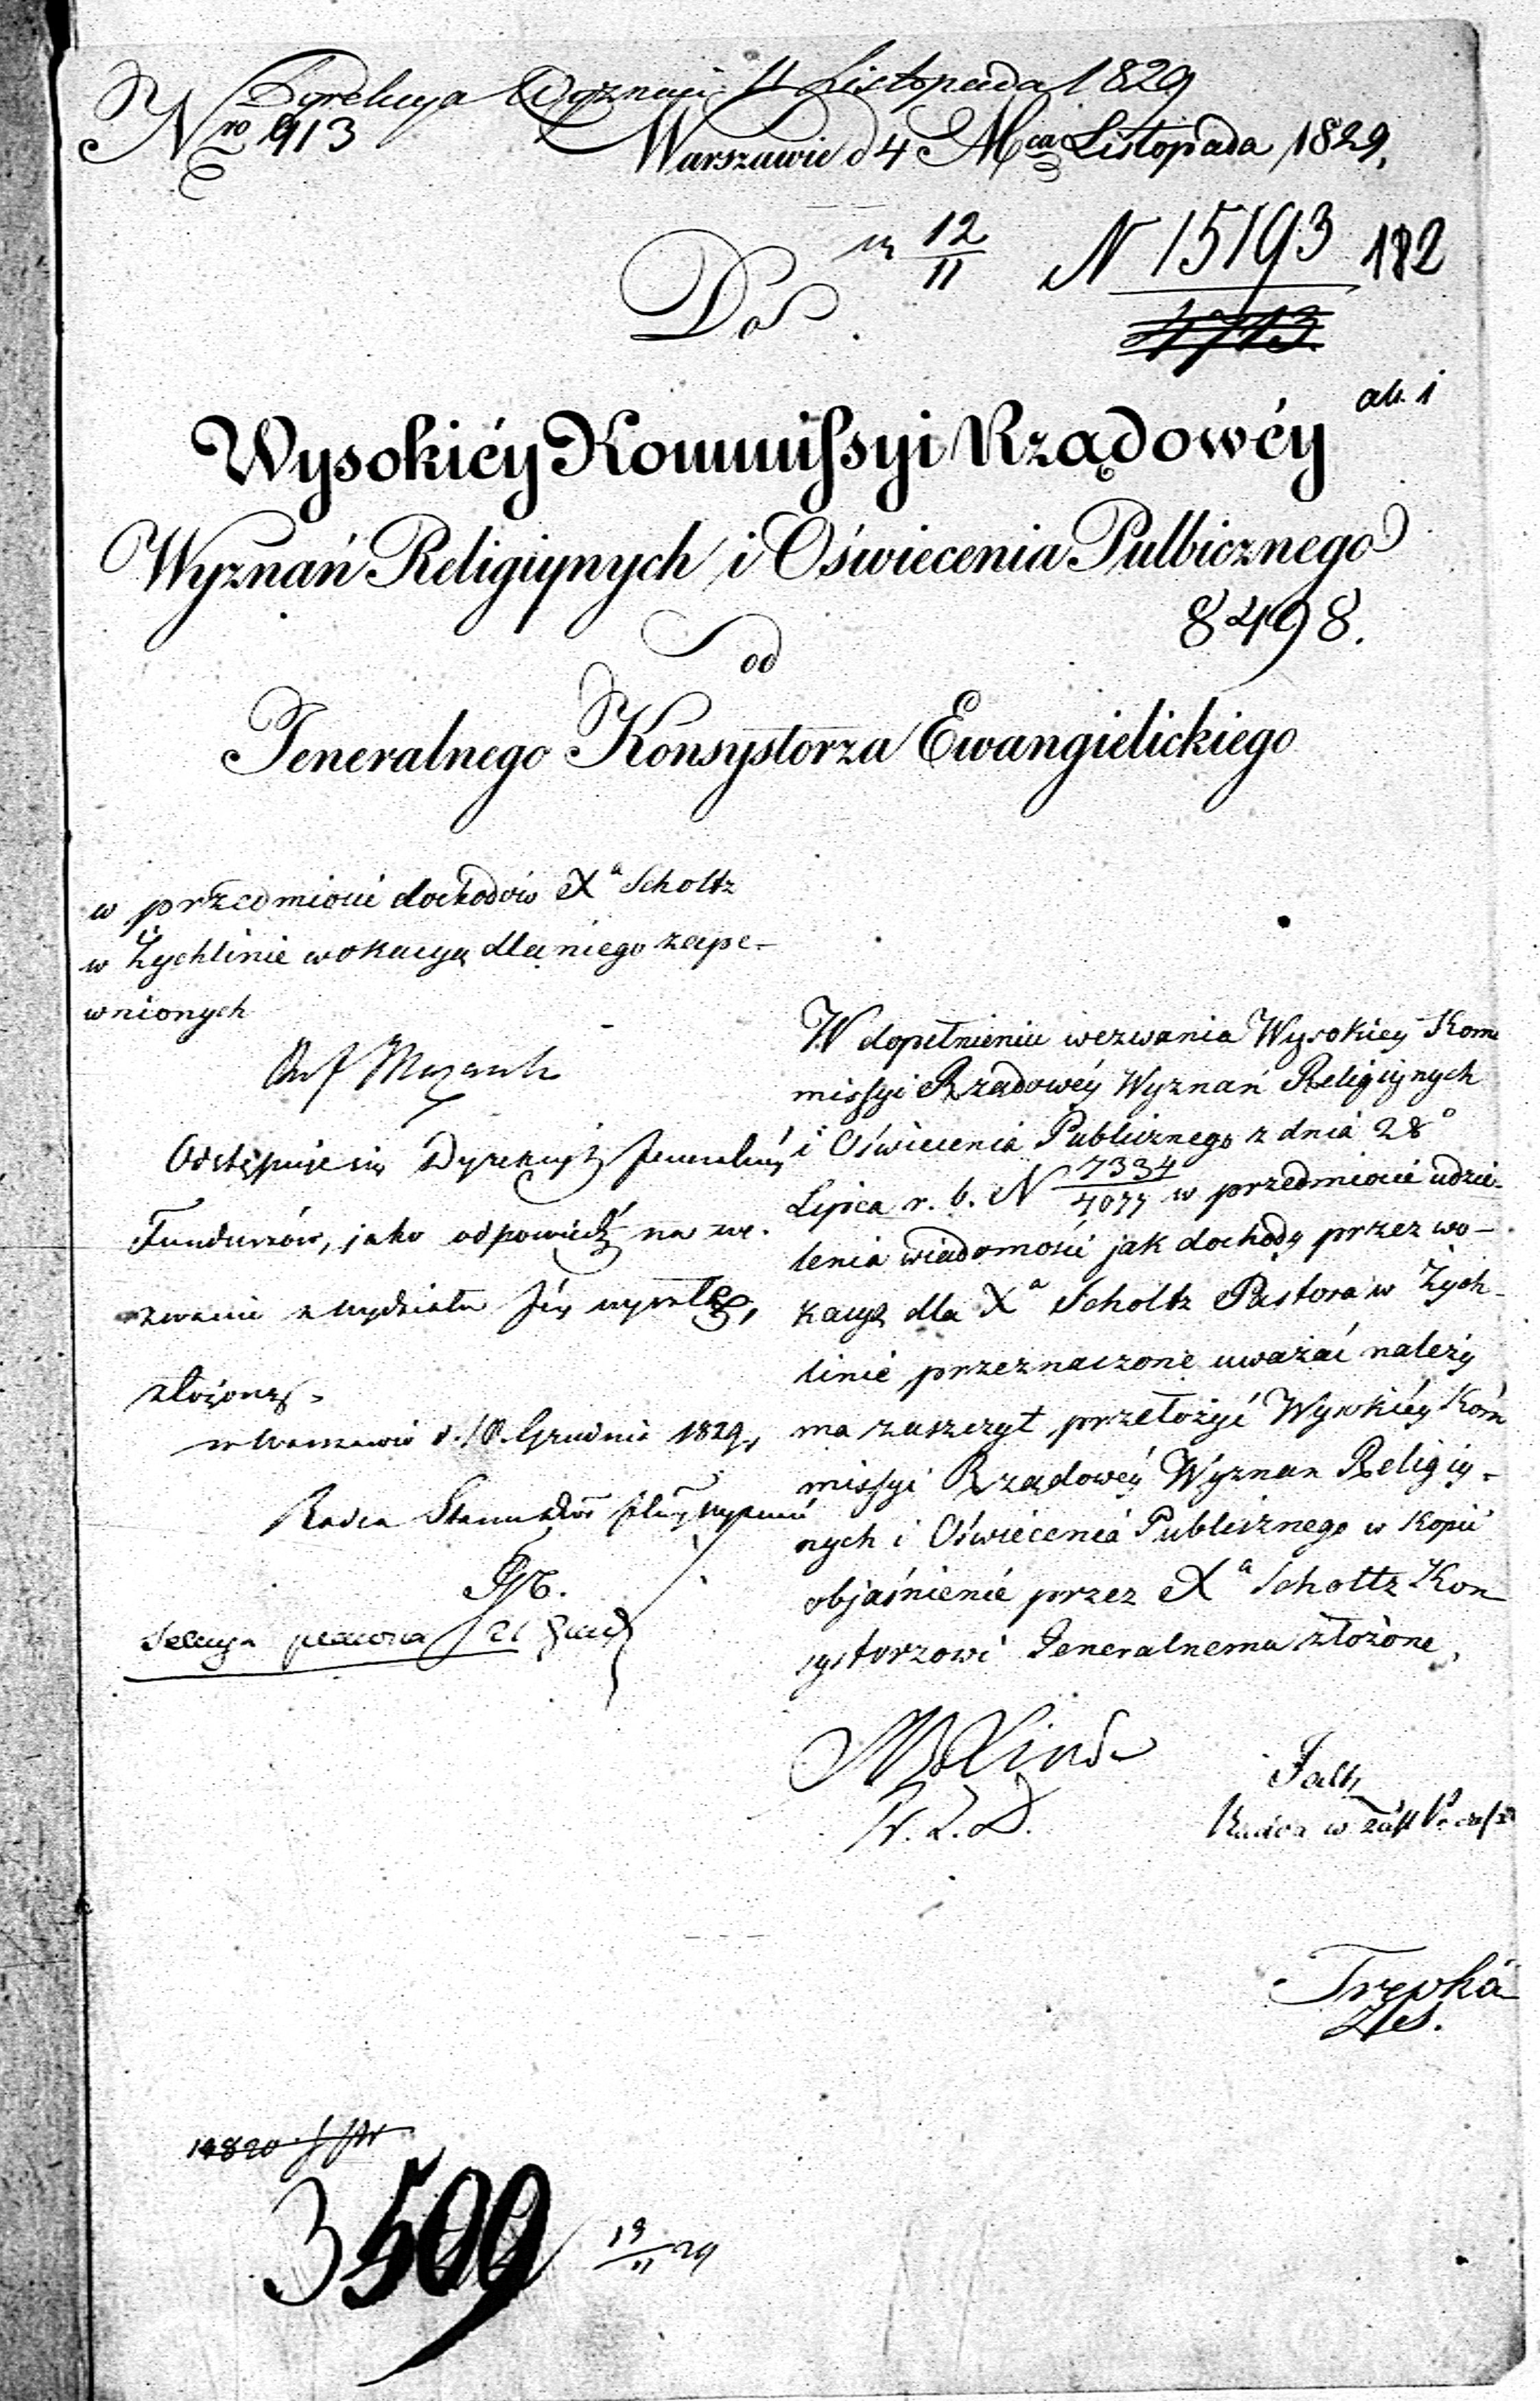 Dyrekcya Wyznań 11 Listopada 1829
Nro 913
w Warszawie d 4 Mca Listopada 1829.
12/11 N 15193 182
4713
Do
ab. 1
Wysokiéy Kommissyi Rządowéy
Wyznań Religiynych i Oświecenia Pulbicznego
8498.
od
Jeneralnego Konsystorza Ewangielickiego
w przedmiocie dochodów Xa Scholtz
w Żychlinie wokacyą dla niego zape-
wnionych
Odstępuje się Dyrekcyi Jeneralnéy
Funduszów, jako odpowiedź na we-
zwanie z wydziału Jéy wyszłe,
złożoną.
w Warszawie d. 10. Grudnia 1829.
Radca Stanu
Sekcya
W dopełnieniu wezwania Wysokiey Kom
missyi Rządowéy Wyznań Religiynych
i Oświecenia Publicznego z dnia 28o
Lipca r. b. N 7334/4077 w przedmiocie udzie-
lenia wiadomość jak dochody przez wo-
kacyą dla Xa Scholtz Pastora w Żych-
linie przeznaczone uważać należy
ma zaszczyt przełożyć Wysokiéy Kom
missyi Rządowéy Wyznan Religiy-
nych i Oświecenia Publicznego w kopii
objaśnienie przez Xa Scholtz Kon
systorzowi Jeneralnemu złożone.
Linde
Falk
Radca w zast
Trepka
14820
3509
19/11 29